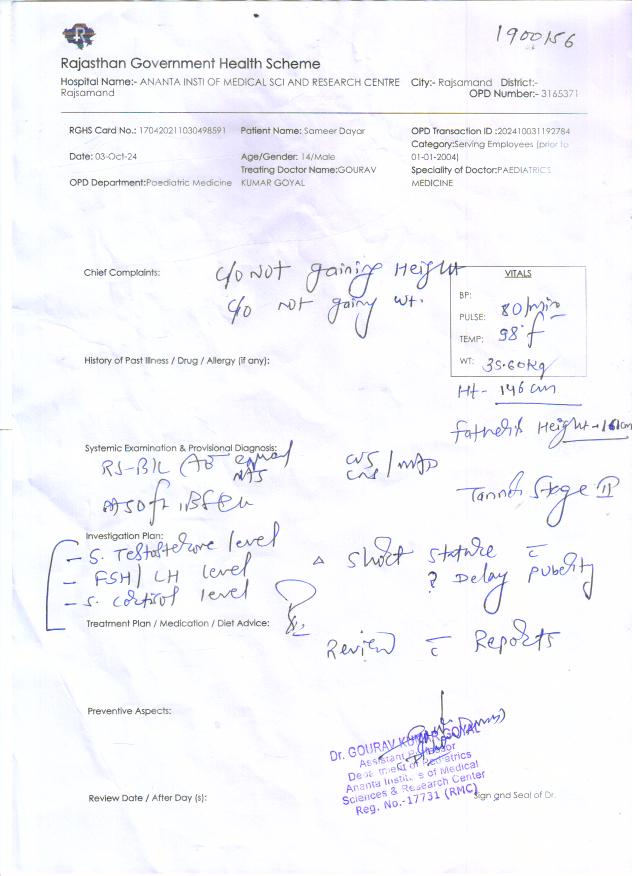 1900156
Rajasthan Government Health Scheme
Hospital Name:- ANANTA INSTI OF MEDICAL SCI AND RESEARCH CENTRE City:- Rajsamand District:-
Rajsamand OPD Number:- 3165371
RGHS Card No.: 170420211030498591 Patient Name: Sameer Dayar OPD Transaction ID :202410031192784
Category:Serving Employees (prior to
Date: 03-Oct-24 Age/Gender: 14/Male 01-01-2004)
Treating Doctor Name:GOURAV Speciality of Doctor:PAEDIATRICS
OPD Department:Paediatric Medicine KUMAR GOYAL MEDICINE
Chief Complaints: C/O NOT gaining Height
C/O NOT gainy Wt.
VITALS
BP:
PULSE: 80/min
TEMP: 98°f
WT: 35.60Kg
History of Past Illness / Drug / Allergy (if any):
Ht- 146 cm
Father's Height - 161cm
Systemic Examination & Provisional Diagnosis:
RS-B/L equal
CNS / NAD
Tanner Stage II
Investigation Plan:
- S. Testosterone level
- FSH/ LH level
- S. cortisol level
Δ Short stature c̄
? Delay puberty
Treatment Plan / Medication / Diet Advice:
Review c̄ Reports
Preventive Aspects:
Dr. GOURAV KUMAR GOYAL
Assistant Professor
Department of Pediatrics
Ananta Institute of Medical
Sciences & Research Center
Reg. No.-17731 (RMC)
Review Date / After Day (s): Sign and Seal of Dr.